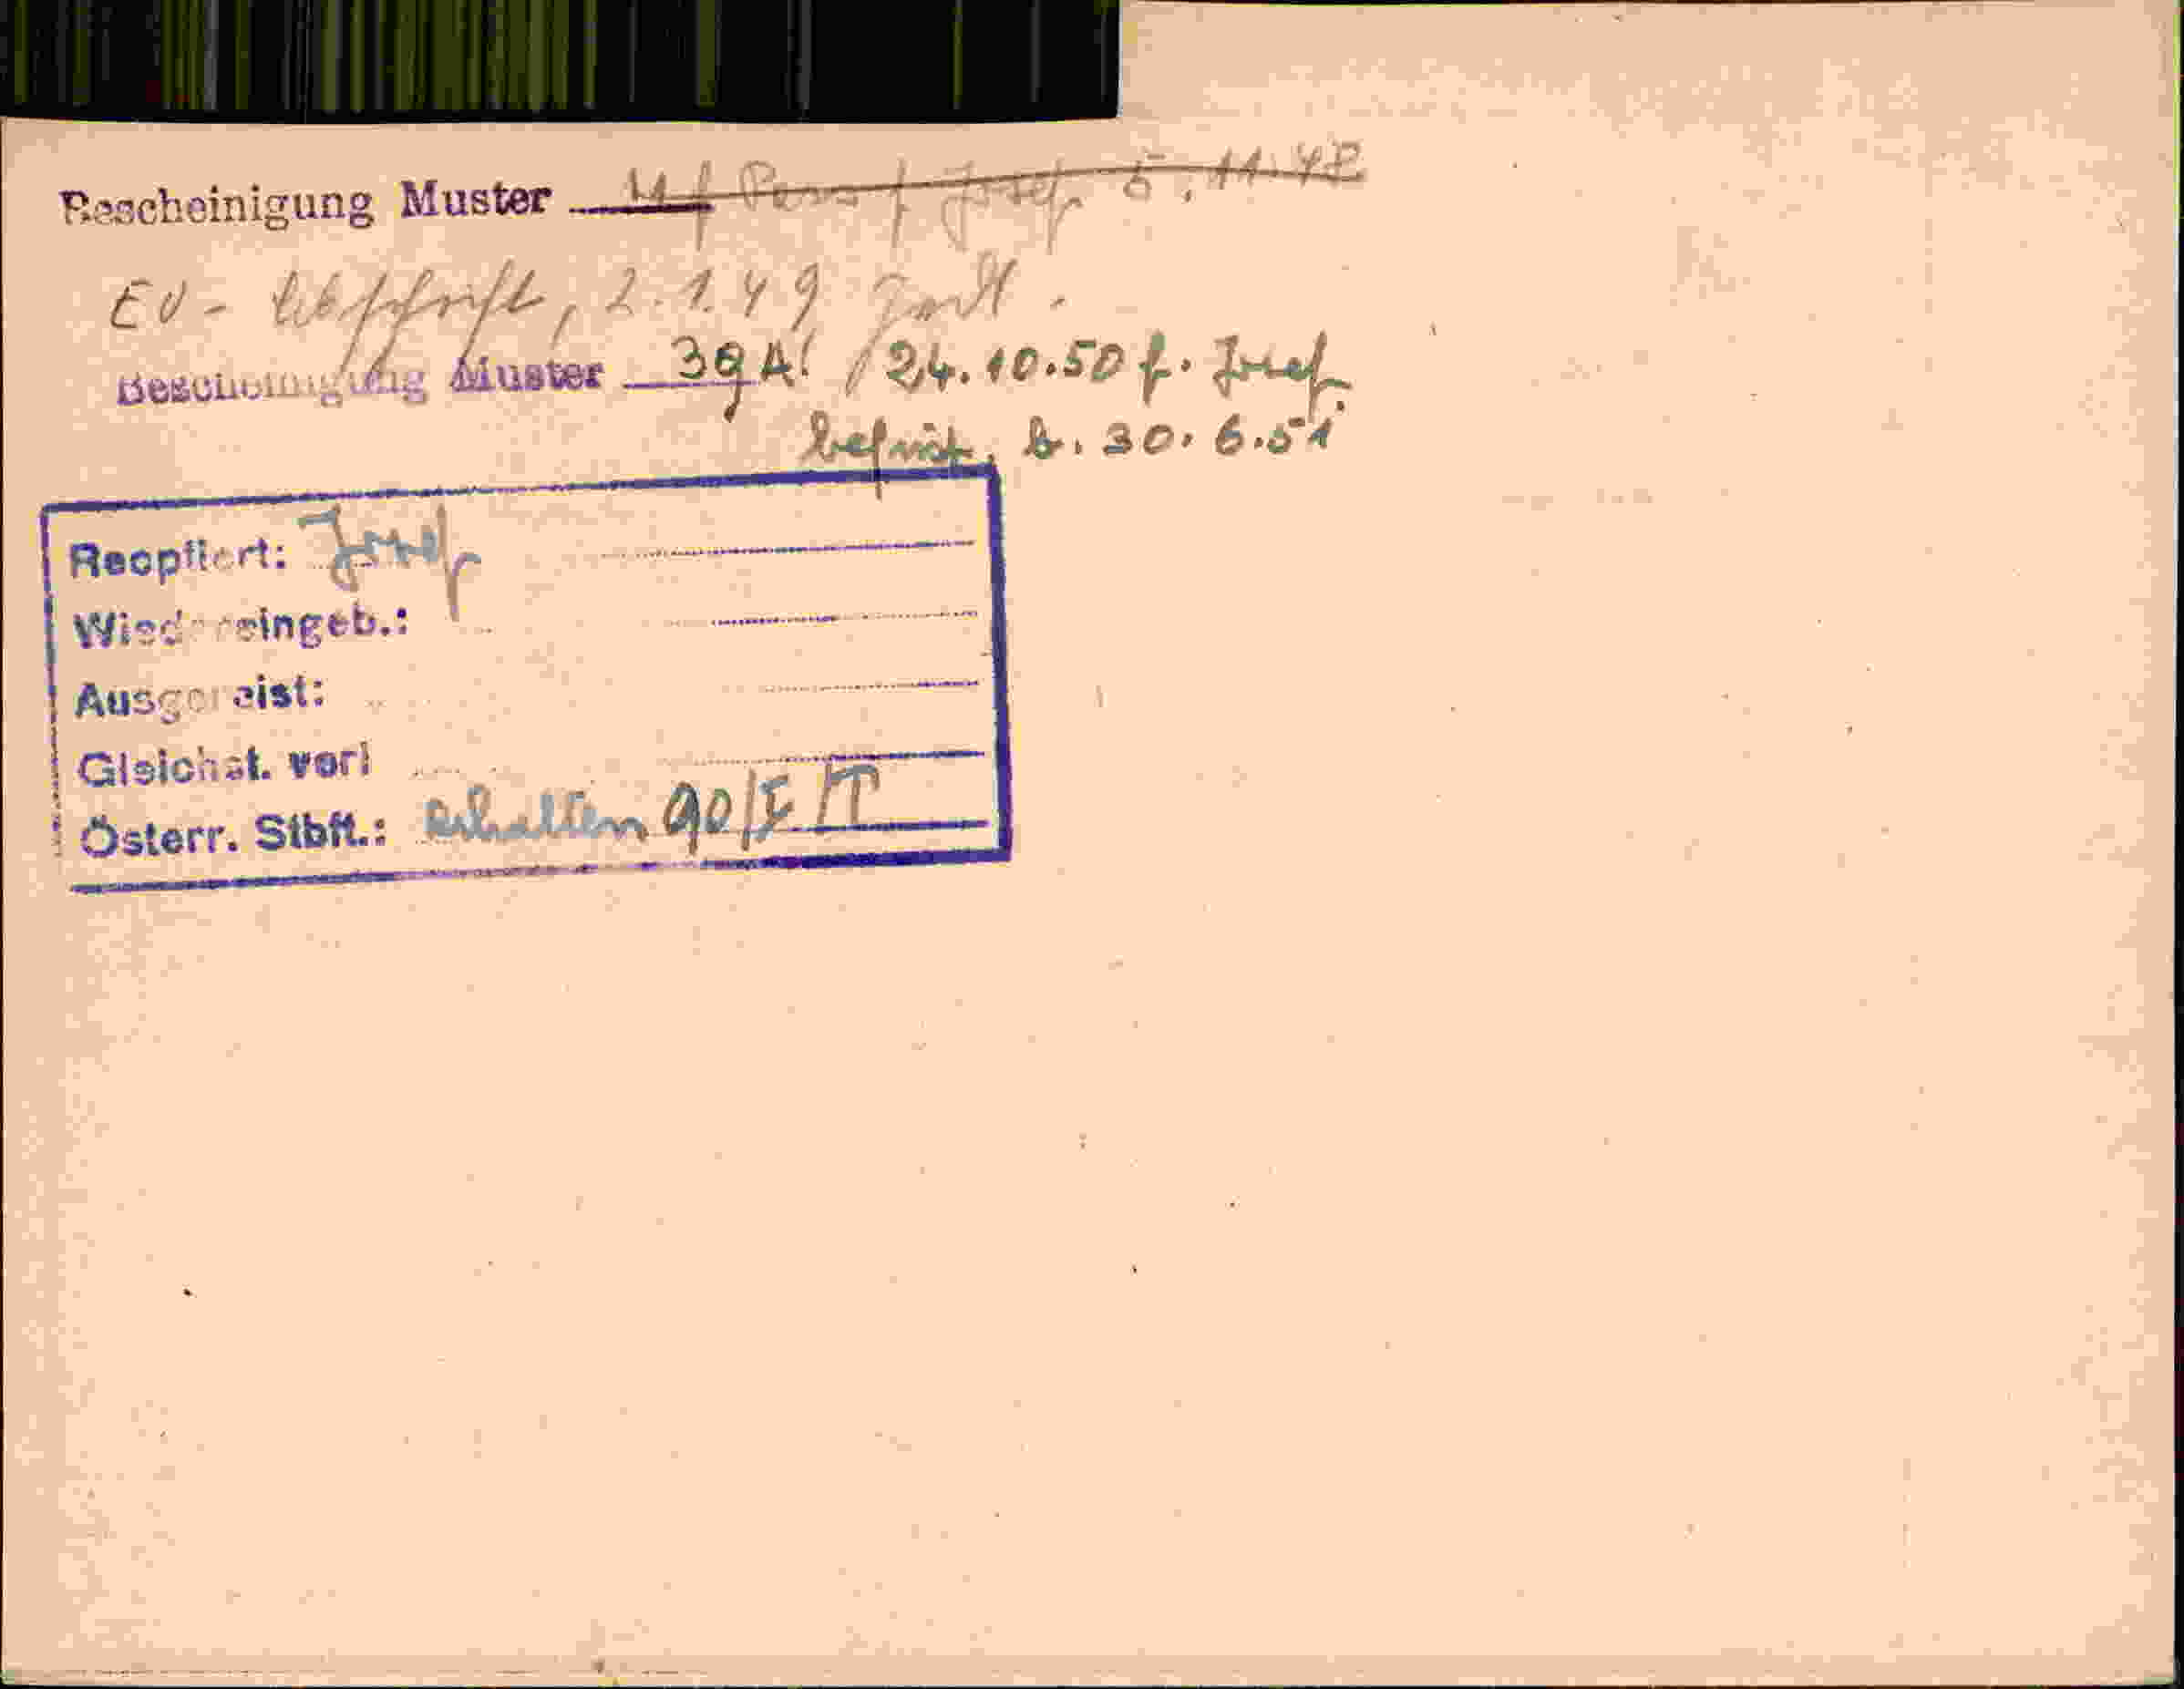 Bescheinigung Muster 5.11.48
EV- Abschrift, 2.1.49
Bescheinigung Muster 39A! / 24.10.50 f. Josef
befrist. b. 30.6.51
Reoptiert: Josef
Wiedereingeb.:
Ausgereist:
Gleichst. vorl
Österr. Stbft.: erhalten 90/I